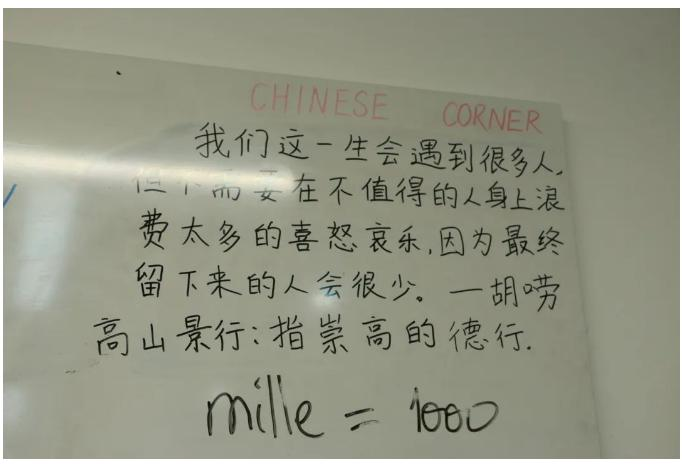 CHINESE CORNER
我们这一生会遇到很多人,
但不需要在不值得的人身上浪
费太多的喜怒哀乐,因为最终
留下来的人会很少。—胡唠
高山景行:指崇高的德行.
mille = 1000